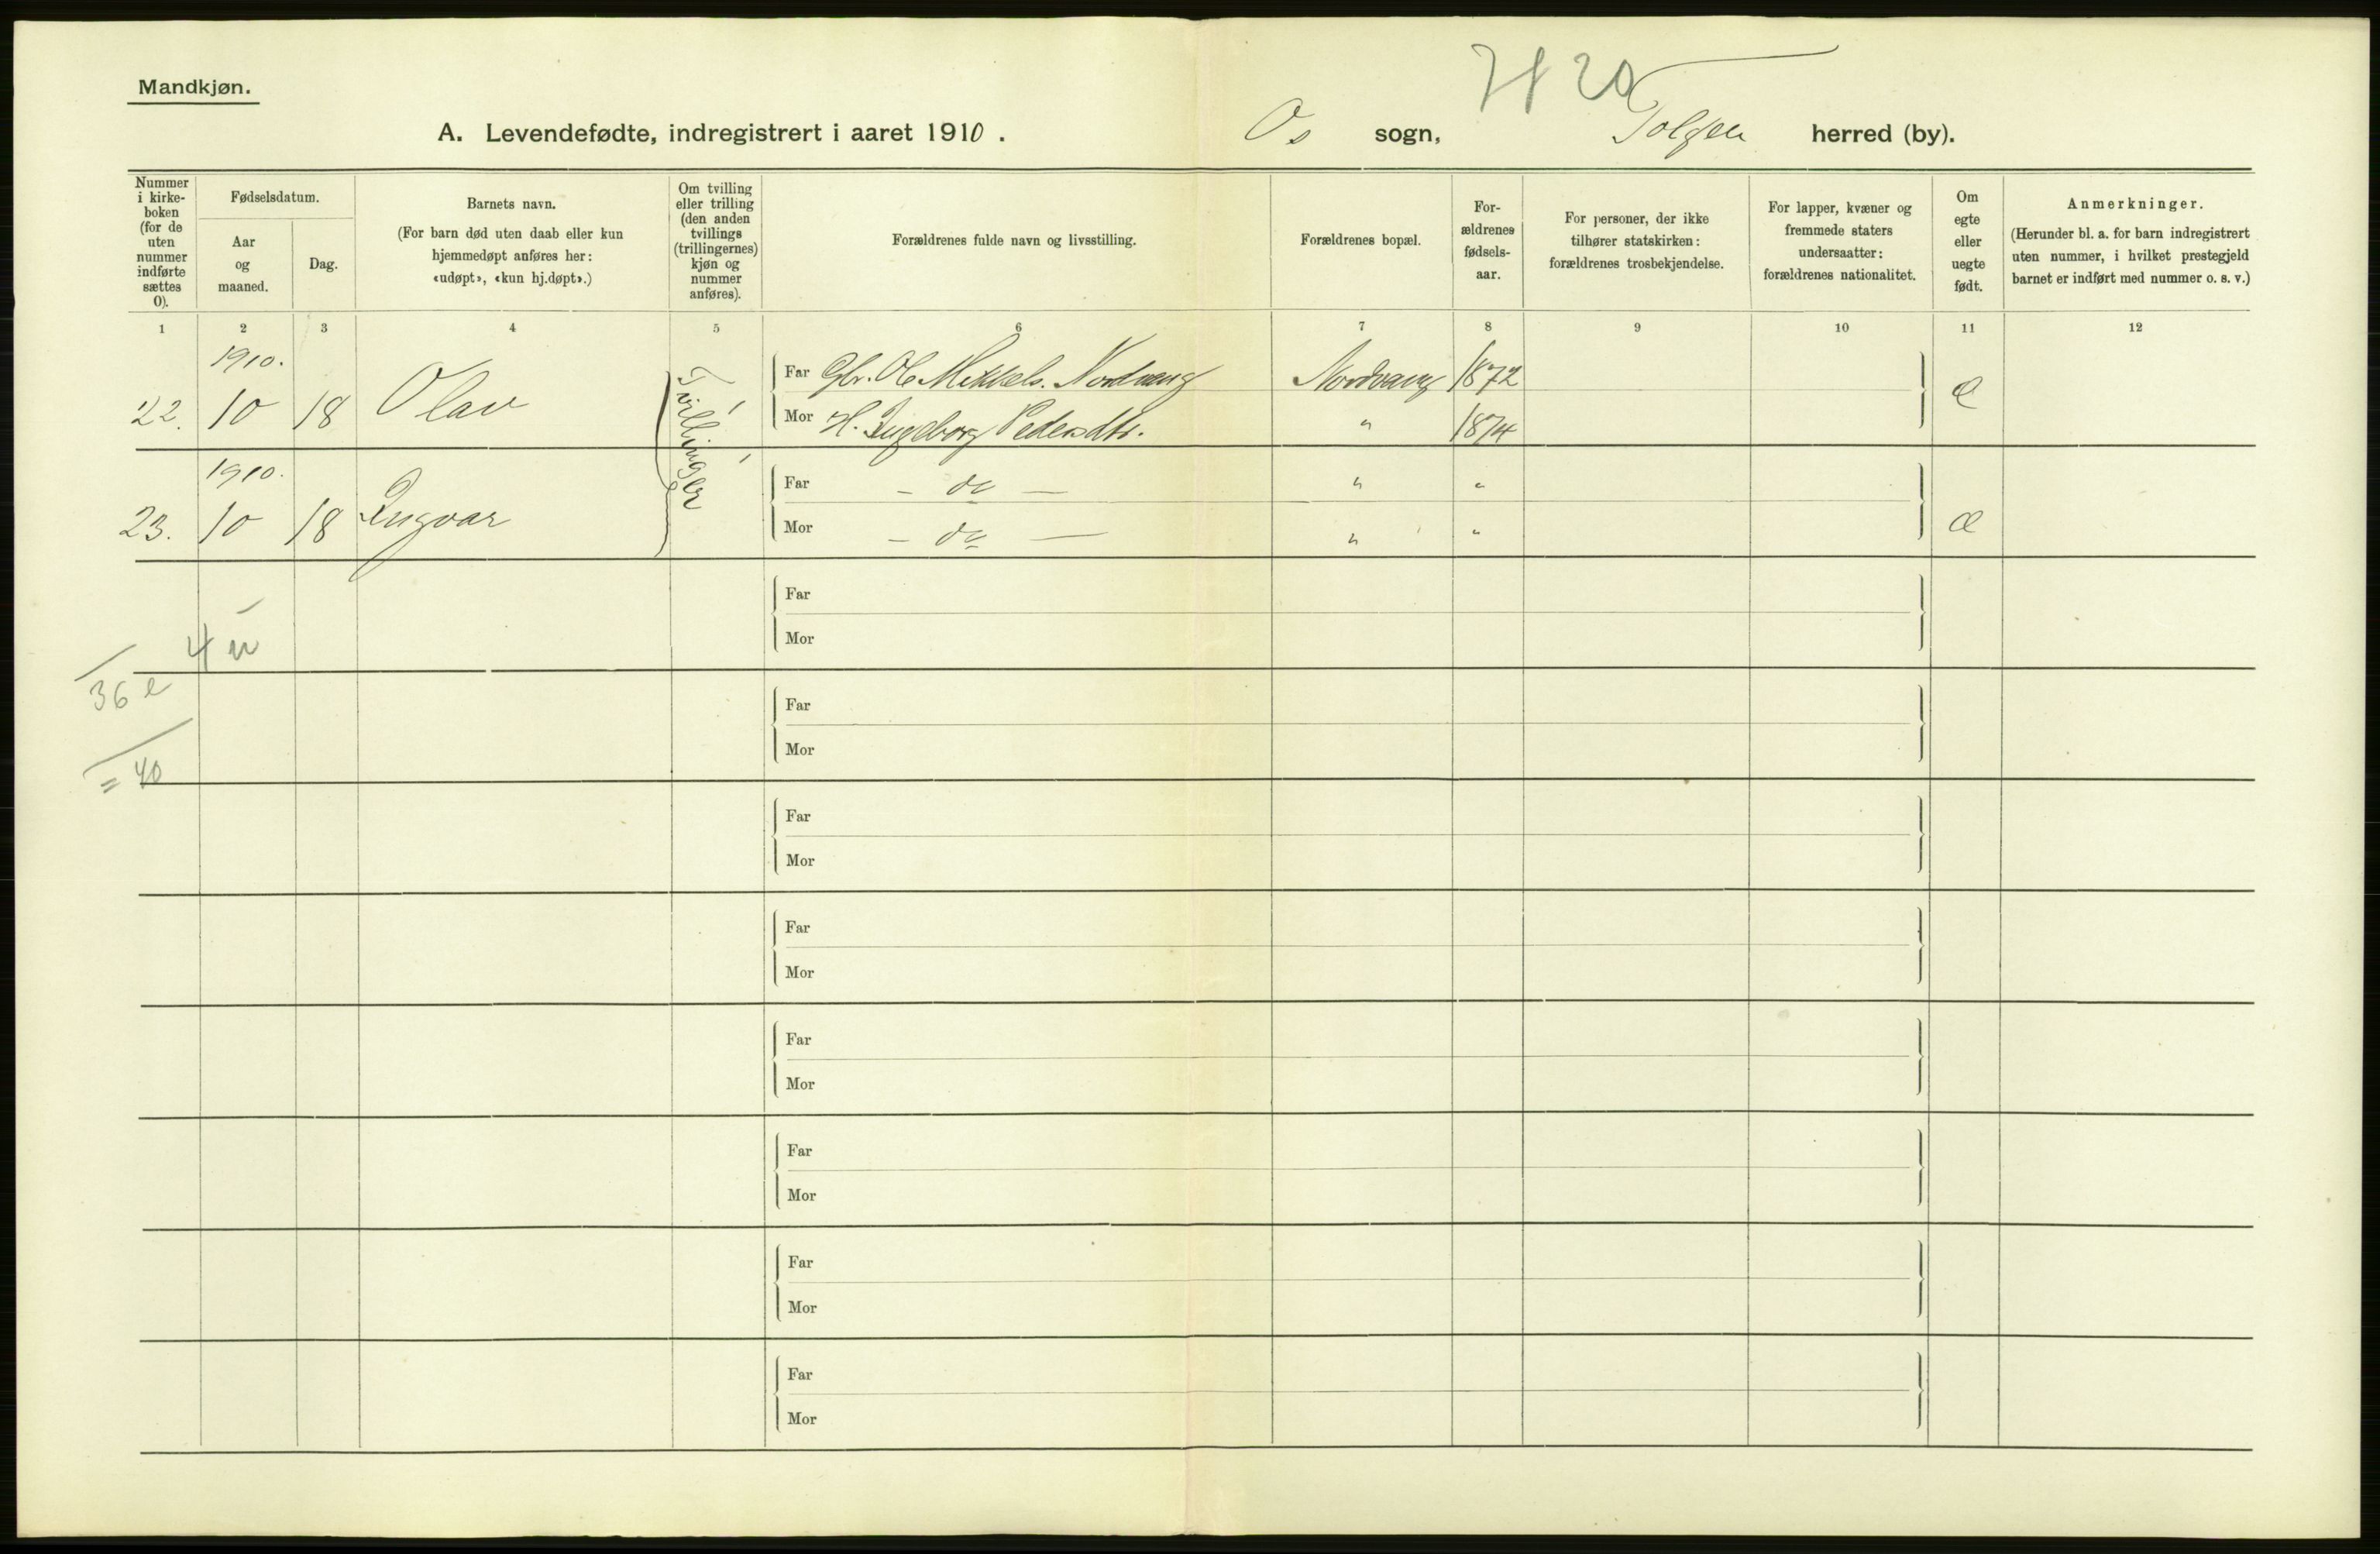 Mandkjøn.
A. Levendefødte, indregistrert i aaret 1910.
Os sogn, Tolgen herred (by).
20
Nummer i kirke-boken (for de uten nummer indførte sættes 0).
Fødselsdatum.
Aar og maaned.
Dag.
Barnets navn.
(For barn død uten daab eller kun hjemmedøpt anføres her: «udøpt», «kun hj.døpt».)
Om tvilling eller trilling (den anden tvillings (trillingernes) kjøn og nummer anføres).
Forældrenes fulde navn og livsstilling.
Forældrenes bopæl.
For-ældrenes fødsels-aar.
For personer, der ikke tilhører statskirken: forældrenes trosbekjendelse.
For lapper, kvæner og fremmede staters undersaatter: forældrenes nationalitet.
Om egte eller uegte født.
Anmerkninger.
(Herunder bl. a. for barn indregistrert uten nummer, i hvilket prestegjeld barnet er indført med nummer o. s. v.)
1 2 3 4 5 6 7 8 9 10 11 12
1910.
22. 10 18 Olav Tvillinger
Far Gbr. Ole Mikkels. Nordvang Nordvang 1872 e
Mor H. Ingeborg Pedersdtr. " 1874
1910.
23. 10 18 Ingvar
Far - do - " "
Mor - do - " " e
Far
4 u
Mor
36 e
Far
Mor
= 40
Far
Mor
Far
Mor
Far
Mor
Far
Mor
Far
Mor
Far
Mor